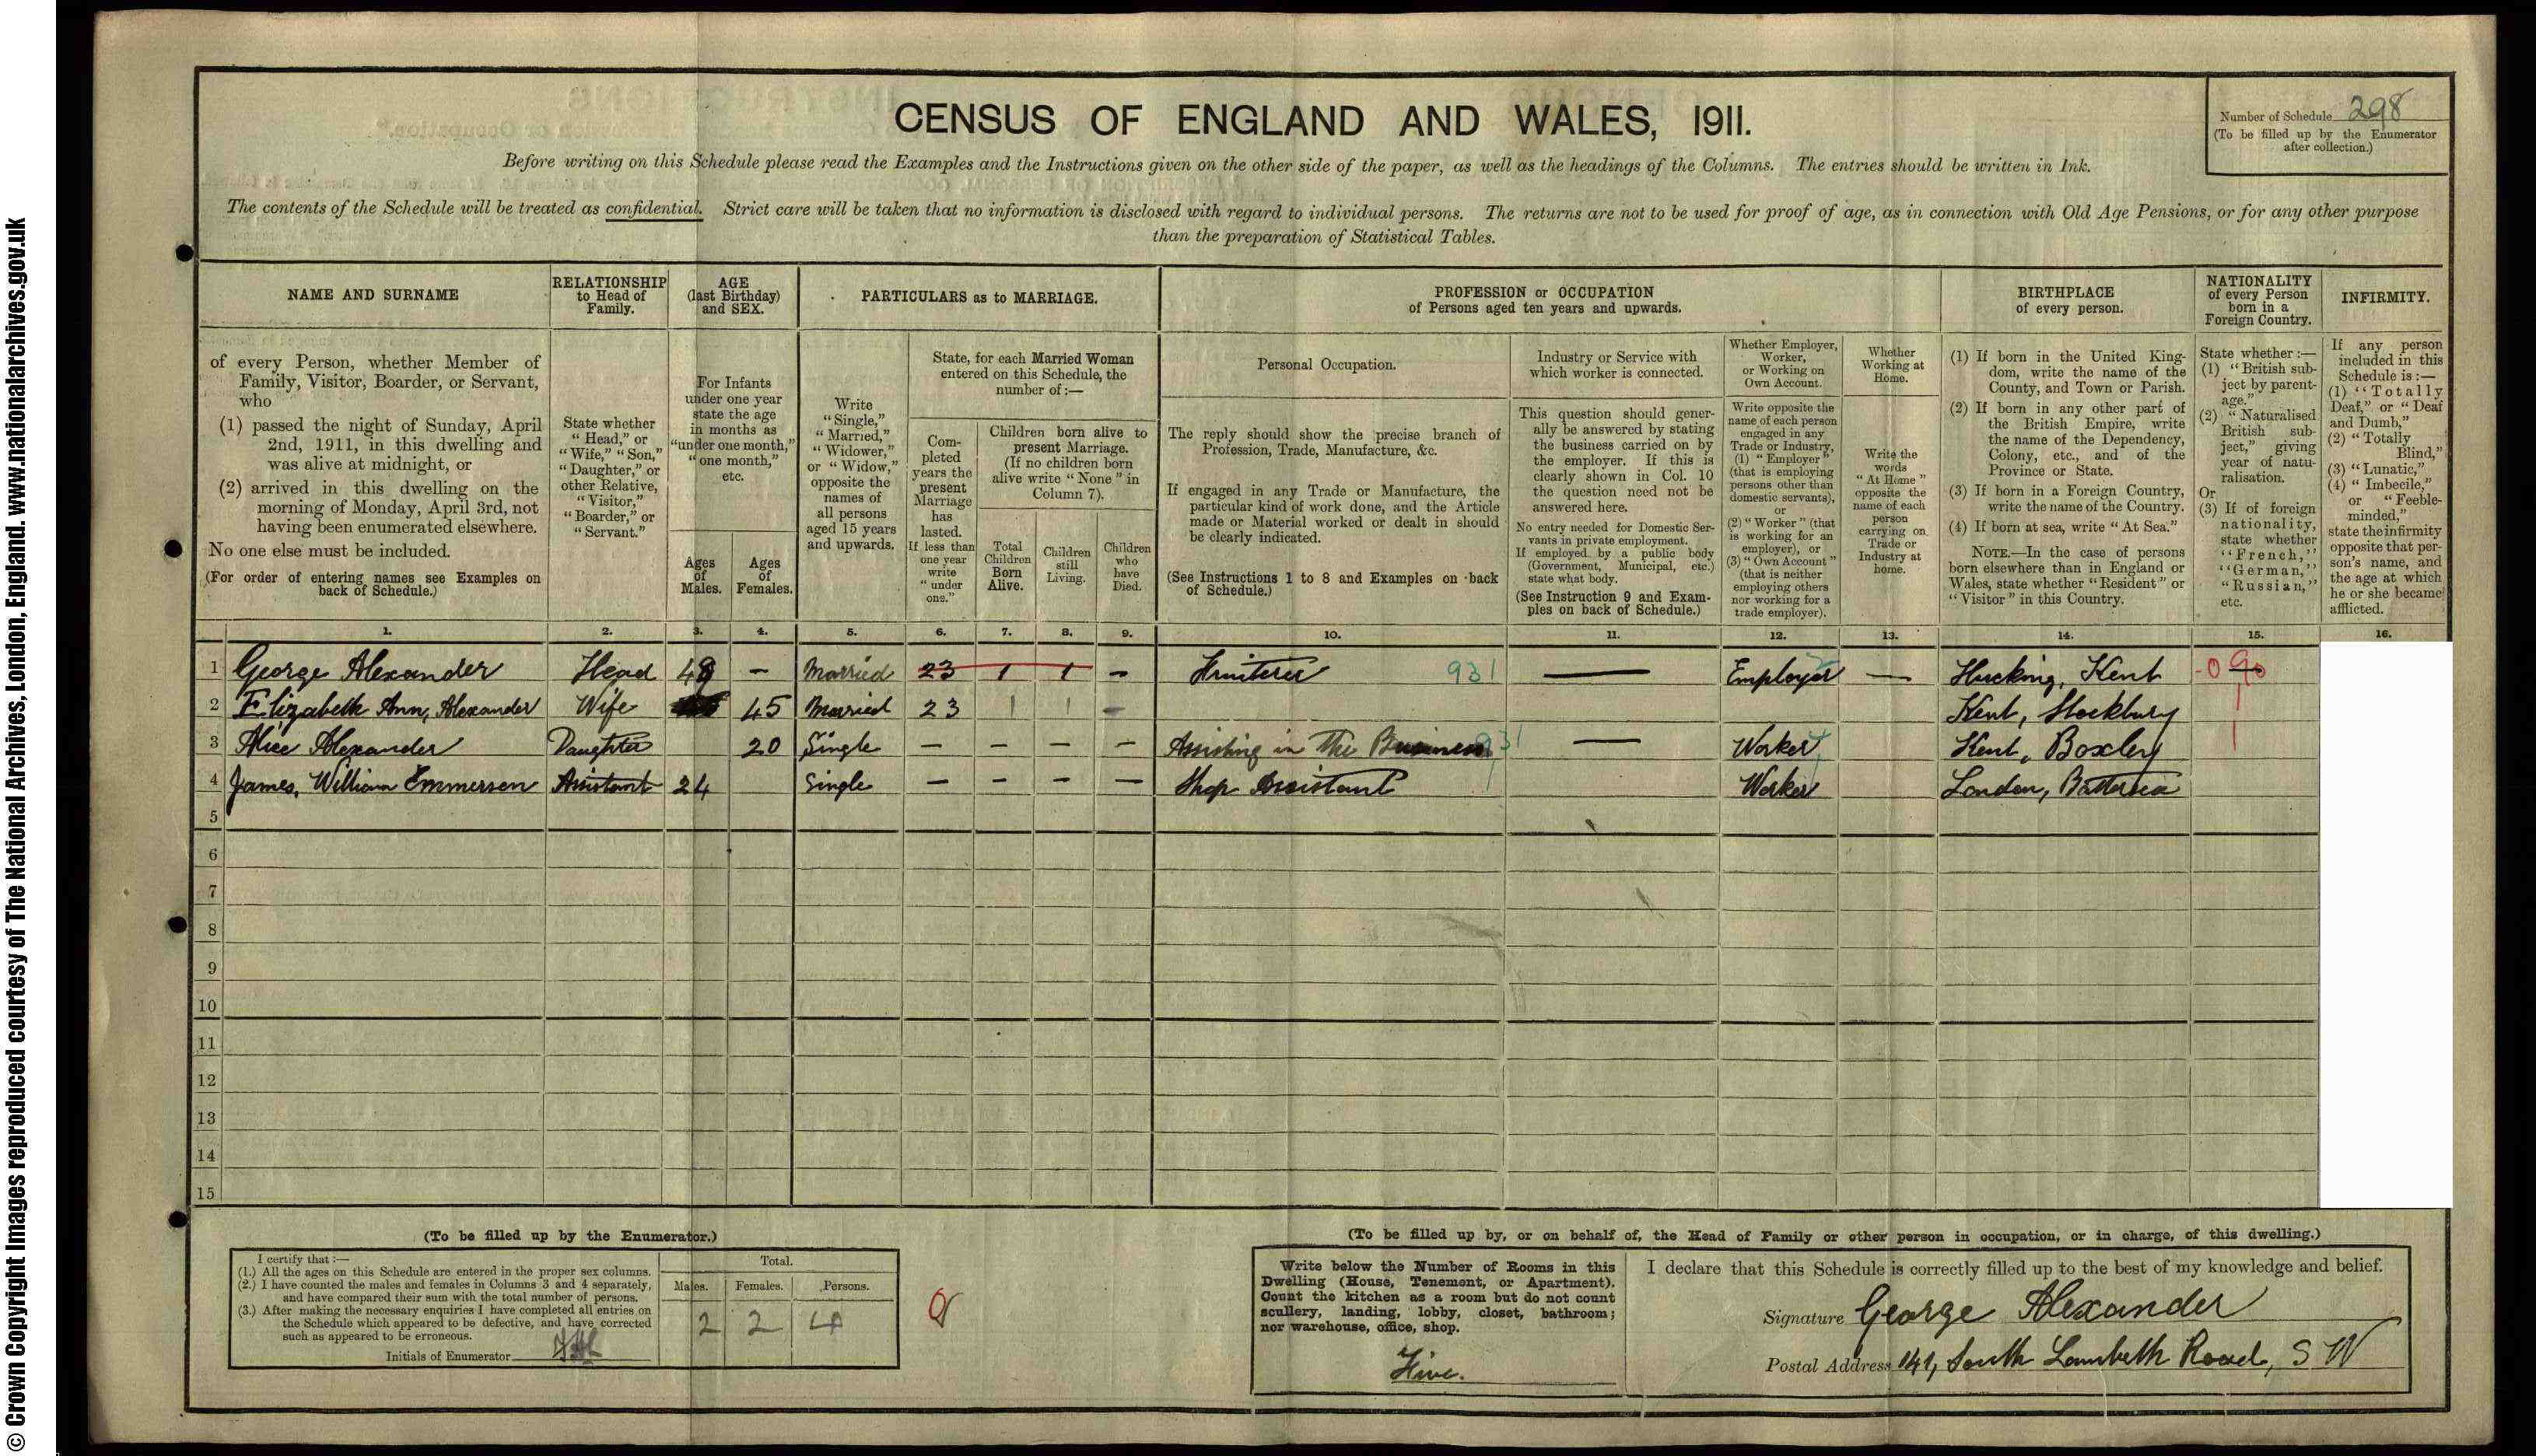 © Crown Copyright Images reproduced courtesy of The National Archives, London, England. www.nationalarchives.gov.uk
CENSUS OF ENGLAND AND WALES, 1911.
Number of Schedule 298
(To be filled up by the Enumerator
after collection.)
Before writing on this Schedule please read the Examples and the Instructions given on the other side of the paper, as well as the headings of the Columns. The entries should be written in Ink.
The contents of the Schedule will be treated as confidential. Strict care will be taken that no information is disclosed with regard to individual persons. The returns are not to be used for proof of age, as in connection with Old Age Pensions, or for any other purpose
than the preparation of Statistical Tables.
NAME AND SURNAME
of every Person, whether Member of
Family, Visitor, Boarder, or Servant,
who
(1) passed the night of Sunday, April
2nd, 1911, in this dwelling and
was alive at midnight, or
(2) arrived in this dwelling on the
morning of Monday, April 3rd, not
having been enumerated elsewhere.
No one else must be included.
(For order of entering names see Examples on
back of Schedule.)
RELATIONSHIP
to Head of
Family.
State whether
"Head," or
"Wife," "Son,"
"Daughter," or
other Relative,
"Visitor,"
"Boarder," or
"Servant."
AGE
(last Birthday)
and SEX.
For Infants
under one year
state the age
in months as
"under one month,"
"one month,"
etc.
Ages
of
Males.
Ages
of
Females.
PARTICULARS as to MARRIAGE.
Write
"Single,"
"Married,"
"Widower,"
or "Widow,"
opposite the
names of
all persons
aged 15 years
and upwards.
State, for each Married Woman
entered on this Schedule, the
number of:—
Com-
pleted
years the
present
Marriage
has
lasted.
If less than
one year
write
"under
one."
Children born alive to
present Marriage.
(If no children born
alive write "None" in
Column 7).
Total
Children
Born
Alive.
Children
still
Living.
Children
who
have
Died.
PROFESSION or OCCUPATION
of Persons aged ten years and upwards.
Personal Occupation.
The reply should show the precise branch of
Profession, Trade, Manufacture, &c.
If engaged in any Trade or Manufacture, the
particular kind of work done, and the Article
made or Material worked or dealt in should
be clearly indicated.
(See Instructions 1 to 8 and Examples on back
of Schedule.)
Industry or Service with
which worker is connected.
This question should gener-
ally be answered by stating
the business carried on by
the employer. If this is
clearly shown in Col. 10
the question need not be
answered here.
No entry needed for Domestic Ser-
vants in private employment.
If employed by a public body
(Government, Municipal, etc.)
state what body.
(See Instruction 9 and Exam-
ples on back of Schedule.)
Whether Employer,
Worker,
or Working on
Own Account.
Write opposite the
name of each person
engaged in any
Trade or Industry,
(1) "Employer"
(that is employing
persons other than
domestic servants),
or
(2) "Worker" (that
is working for an
employer), or
(3) "Own Account"
(that is neither
employing others
nor working for a
trade employer).
Whether
Working at
Home.
Write the
words
"At Home"
opposite the
name of each
person
carrying on
Trade or
Industry at
home.
BIRTHPLACE
of every person.
(1) If born in the United King-
dom, write the name of the
County, and Town or Parish.
(2) If born in any other part of
the British Empire, write
the name of the Dependency,
Colony, etc., and of the
Province or State.
(3) If born in a Foreign Country,
write the name of the Country.
(4) If born at sea, write "At Sea."
NOTE.—In the case of persons
born elsewhere than in England or
Wales, state whether "Resident" or
"Visitor" in this Country.
NATIONALITY
of every Person
born in a
Foreign Country.
State whether:—
(1) "British sub-
ject by parent-
age."
(2) "Naturalised
British sub-
ject," giving
year of natu-
ralisation.
Or
(3) If of foreign
nationality,
state whether
"French,"
"German,"
"Russian,"
etc.
INFIRMITY.
If any person
included in this
Schedule is:—
(1) "Totally
Deaf," or "Deaf
and Dumb,"
(2) "Totally
Blind,"
(3) "Lunatic,"
(4) "Imbecile,"
or "Feeble-
minded,"
state the infirmity
opposite that per-
son's name, and
the age at which
he or she became
afflicted.
1. 2. 3. 4. 5. 6. 7. 8. 9. 10. 11. 12. 13. 14. 15. 16.
1 George Alexander Head 48 — Married 23 1 1 — Fruiterer 931 — Employer — Hucking, Kent
2 Elizabeth Ann, Alexander Wife 45 Married 23 1 1 — Kent, Stockbury
3 Alice Alexander Daughter 20 Single — — — — Assisting in The Business 931 — Worker Kent, Boxley
4 James, William Emmerson Assistant 24 Single — — — — Shop Assistant Worker London, Battersea
5
6
7
8
9
10
11
12
13
14
15
(To be filled up by the Enumerator.)
I certify that:—
(1.) All the ages on this Schedule are entered in the proper sex columns.
(2.) I have counted the males and females in Columns 3 and 4 separately,
and have compared their sum with the total number of persons.
(3.) After making the necessary enquiries I have completed all entries on
the Schedule which appeared to be defective, and have corrected
such as appeared to be erroneous.
Initials of Enumerator
Total.
Males. Females. Persons.
2 2 4
(To be filled up by, or on behalf of, the Head of Family or other person in occupation, or in charge, of this dwelling.)
Write below the Number of Rooms in this
Dwelling (House, Tenement, or Apartment).
Count the kitchen as a room but do not count
scullery, landing, lobby, closet, bathroom;
nor warehouse, office, shop.
Five.
I declare that this Schedule is correctly filled up to the best of my knowledge and belief.
Signature George Alexander
Postal Address 141, South Lambeth Road, S W